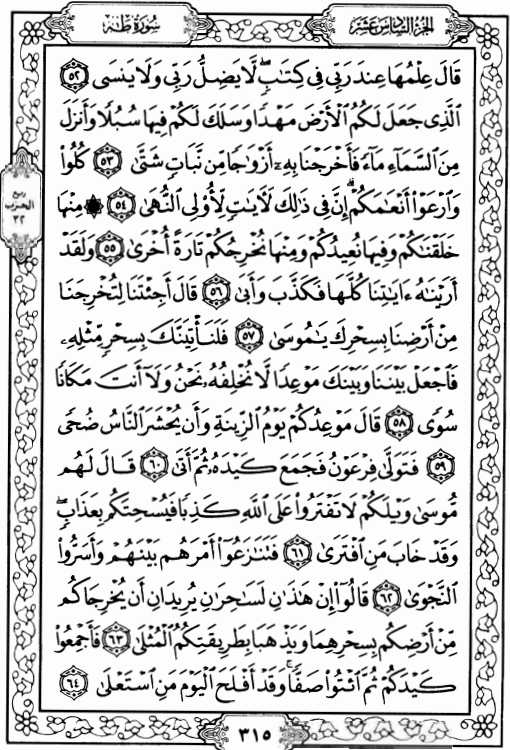 الجزء السادس عشر
سورة طه
قَالَ عِلْمُهَا عِندَ رَبِّى فِى كِتَٰبٍ ۖ لَّا يَضِلُّ رَبِّى وَلَا يَنسَى ٥٢
ٱلَّذِى جَعَلَ لَكُمُ ٱلْأَرْضَ مَهْدًا وَسَلَكَ لَكُمْ فِيهَا سُبُلًا وَأَنزَلَ
مِنَ ٱلسَّمَآءِ مَآءً فَأَخْرَجْنَا بِهِۦٓ أَزْوَٰجًا مِّن نَّبَاتٍ شَتَّىٰ ٥٣ كُلُوا۟
وَٱرْعَوْا۟ أَنْعَٰمَكُمْ ۗ إِنَّ فِى ذَٰلِكَ لَءَايَٰتٍ لِّأُو۟لِى ٱلنُّهَىٰ ٥٤ ۞ مِنْهَا
ربع
الحزب
٣٢
خَلَقْنَٰكُمْ وَفِيهَا نُعِيدُكُمْ وَمِنْهَا نُخْرِجُكُمْ تَارَةً أُخْرَىٰ ٥٥ وَلَقَدْ
أَرَيْنَٰهُ ءَايَٰتِنَا كُلَّهَا فَكَذَّبَ وَأَبَىٰ ٥٦ قَالَ أَجِئْتَنَا لِتُخْرِجَنَا
مِنْ أَرْضِنَا بِسِحْرِكَ يَٰمُوسَىٰ ٥٧ فَلَنَأْتِيَنَّكَ بِسِحْرٍ مِّثْلِهِۦ
فَٱجْعَلْ بَيْنَنَا وَبَيْنَكَ مَوْعِدًا لَّا نُخْلِفُهُۥ نَحْنُ وَلَآ أَنتَ مَكَانًا
سُوًى ٥٨ قَالَ مَوْعِدُكُمْ يَوْمُ ٱلزِّينَةِ وَأَن يُحْشَرَ ٱلنَّاسُ ضُحًى
٥٩ فَتَوَلَّىٰ فِرْعَوْنُ فَجَمَعَ كَيْدَهُۥ ثُمَّ أَتَىٰ ٦٠ قَالَ لَهُم
مُّوسَىٰ وَيْلَكُمْ لَا تَفْتَرُوا۟ عَلَى ٱللَّهِ كَذِبًا فَيُسْحِتَكُم بِعَذَابٍ ۖ
وَقَدْ خَابَ مَنِ ٱفْتَرَىٰ ٦١ فَتَنَٰزَعُوٓا۟ أَمْرَهُم بَيْنَهُمْ وَأَسَرُّوا۟
ٱلنَّجْوَىٰ ٦٢ قَالُوٓا۟ إِنْ هَٰذَٰنِ لَسَٰحِرَٰنِ يُرِيدَانِ أَن يُخْرِجَاكُم
مِّنْ أَرْضِكُم بِسِحْرِهِمَا وَيَذْهَبَا بِطَرِيقَتِكُمُ ٱلْمُثْلَىٰ ٦٣ فَأَجْمِعُوا۟
كَيْدَكُمْ ثُمَّ ٱئْتُوا۟ صَفًّا ۚ وَقَدْ أَفْلَحَ ٱلْيَوْمَ مَنِ ٱسْتَعْلَىٰ ٦٤
٣١٥